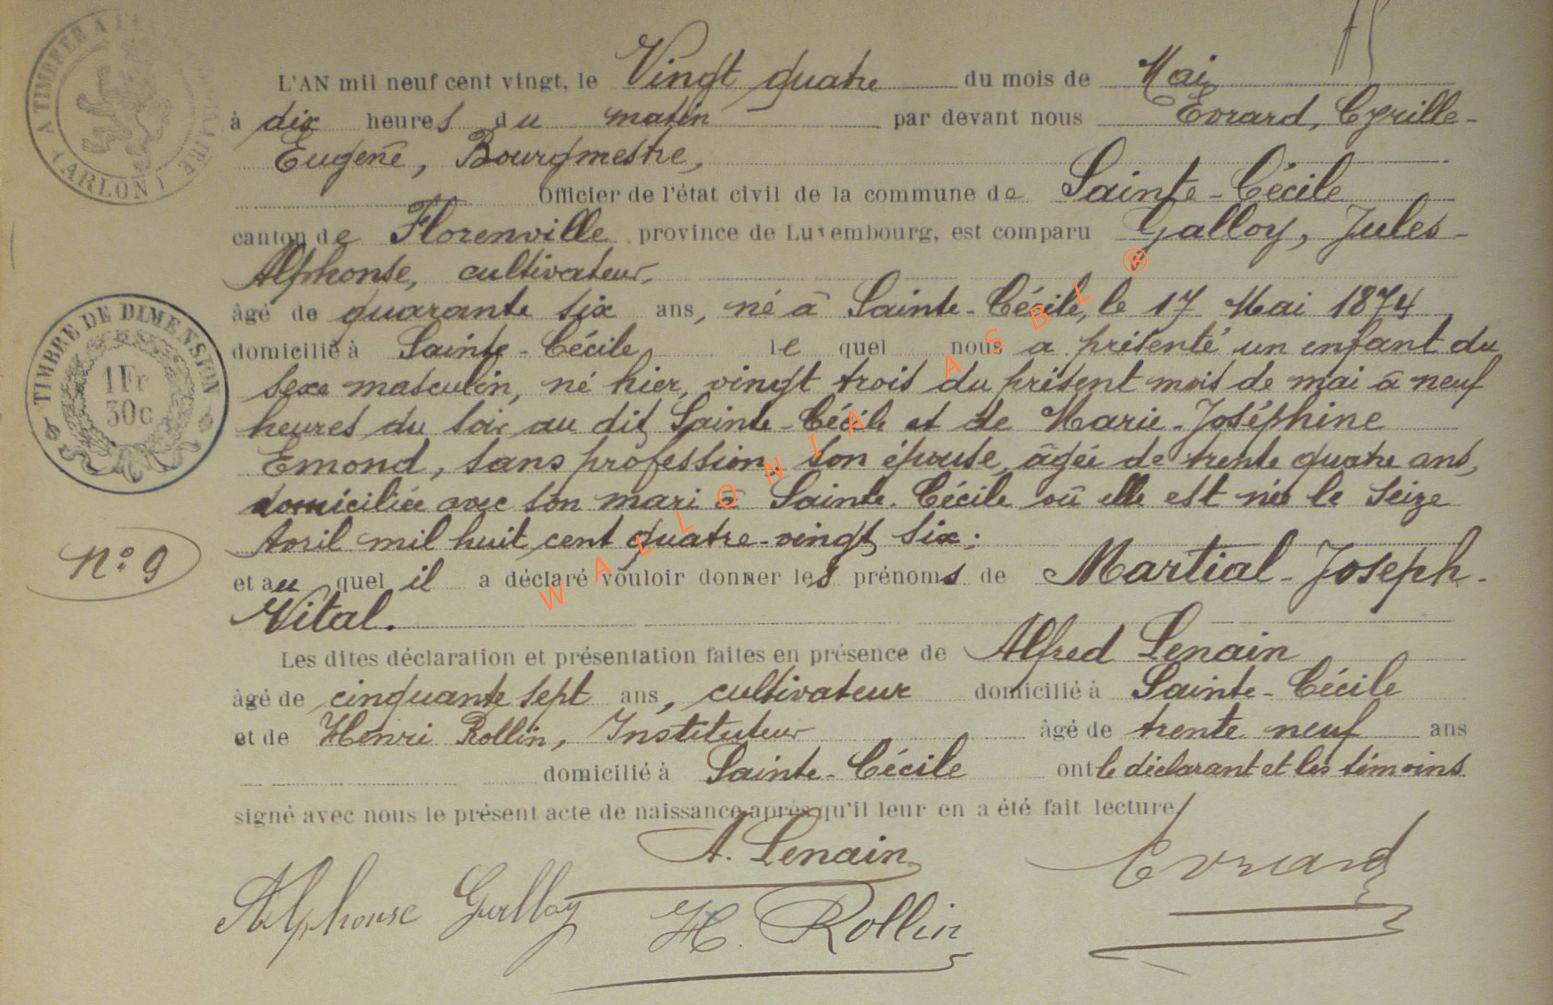 L'AN mil neuf cent vingt, le Vingt quatre du mois de Mai
à dix heures du matin par devant nous Evrard, Cyrille-
Eugène, Bourgmestre,
Officier de l'état civil de la commune de Sainte-Cécile
canton de Florenville province de Luxembourg, est comparu Galloy, Jules-
Alphonse, cultivateur,
âgé de quarante six ans, né à Sainte-Cécile, le 17 Mai 1874
domicilié à Sainte-Cécile, lequel nous a présenté un enfant du
sexe masculin, né hier, vingt trois du présent mois de mai à neuf
heures du soir au dit Sainte-Cécile et de Marie-Joséphine
Emond, sans profession, son épouse, âgée de trente quatre ans,
domiciliée avec son mari à Sainte-Cécile où elle est née le seize
Avril mil huit cent quatre-vingt six;
et auquel il a déclaré vouloir donner les prénoms de Martial-Joseph-
Vital.
Les dites déclaration et présentation faites en présence de Alfred Lenain
âgé de cinquante sept ans, cultivateur domicilié à Sainte-Cécile
et de Henri Rollin, Instituteur âgé de trente neuf ans
domicilié à Sainte-Cécile ont le déclarant et les témoins
signé avec nous le présent acte de naissance après qu'il leur en a été fait lecture
A. Lenain
Evrard
Alphonse Galloy
H. Rollin
N° 9
A TIMBRER A L'EXTRAORDINAIRE
(ARLON)
TIMBRE DE DIMENSION
1Fr
30c
WALLONIA ASBL ®